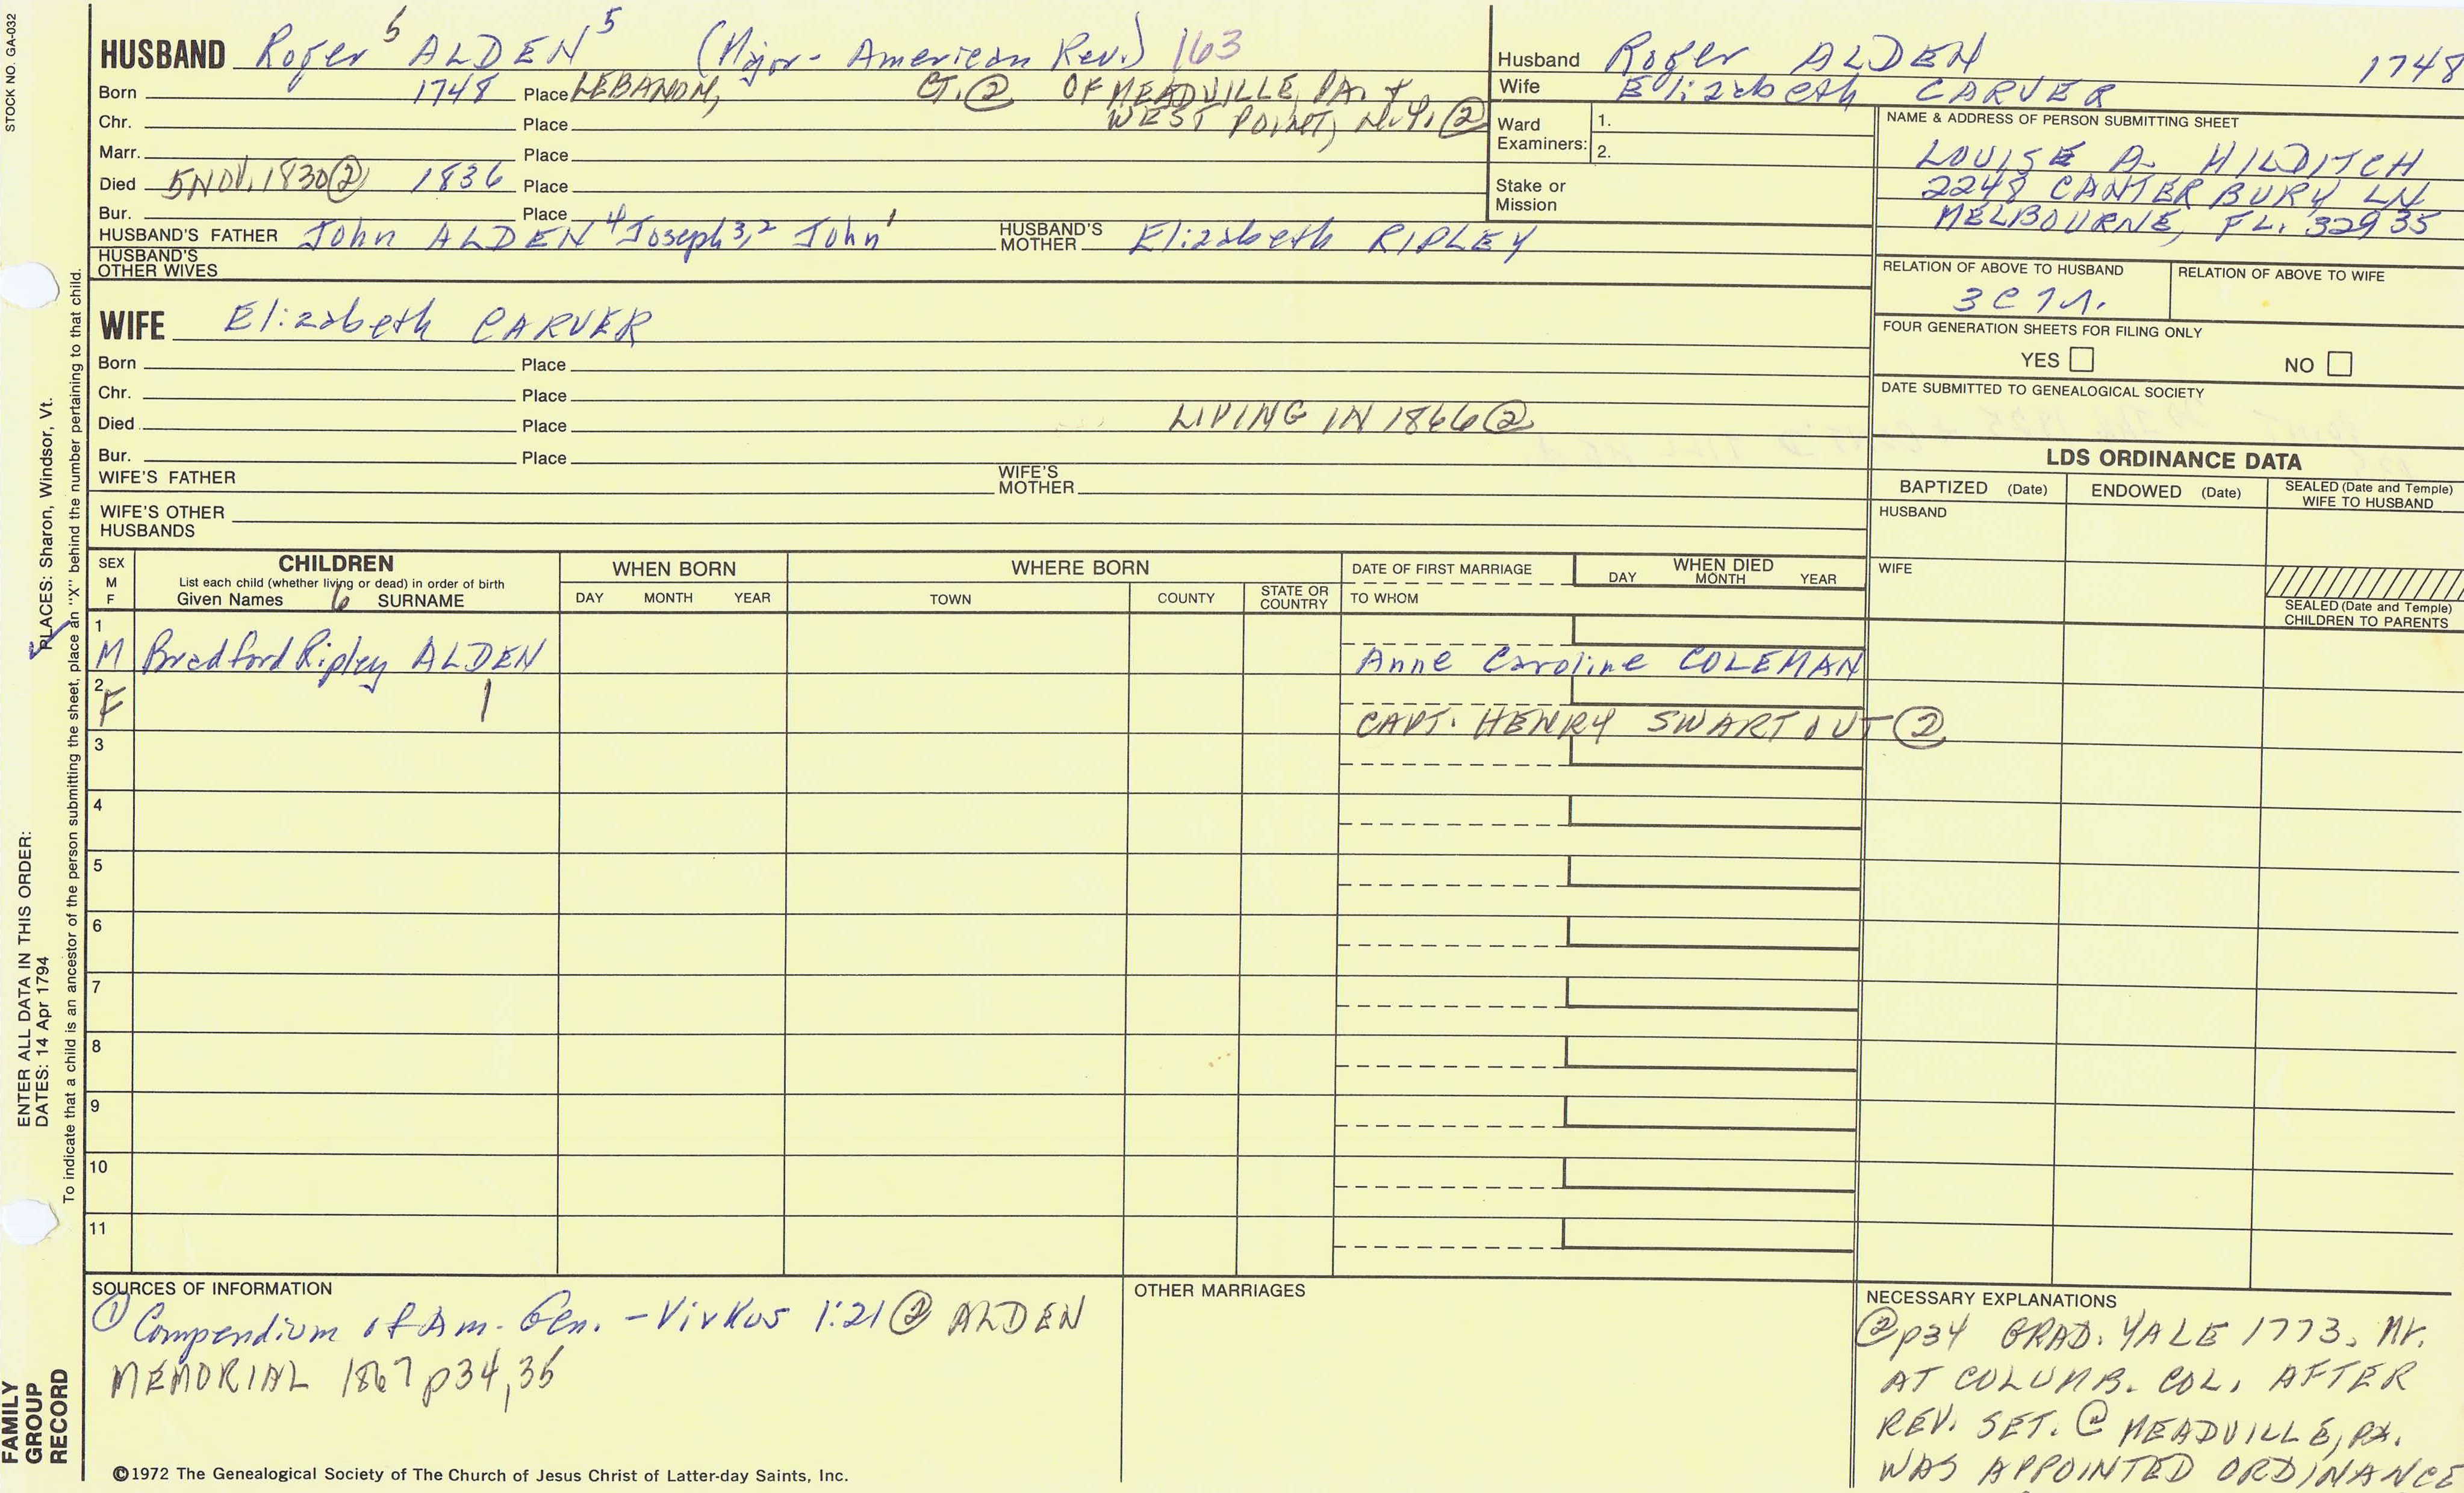 STOCK NO. GA-032
HUSBAND Roger 5 ALDEN 5 (Major - American Rev.) 163
Born 1748 Place LEBANON, CT. ② OF MEADVILLE, PA. &
Chr. Place WEST POINT, N.Y. ②
Marr. Place
Died 5 NOV. 1830 ② 1836 Place
Bur. Place
HUSBAND'S FATHER John ALDEN 4 Joseph 3,2 John 1 HUSBAND'S MOTHER Elizabeth RIPLEY
HUSBAND'S OTHER WIVES
Husband Roger ALDEN 1748
Wife Elizabeth CARVER
Ward Examiners: 1.
2.
Stake or Mission
NAME & ADDRESS OF PERSON SUBMITTING SHEET
LOUISE A. HILDITCH
2248 CANTERBURY LN
MELBOURNE, FL. 32935
RELATION OF ABOVE TO HUSBAND RELATION OF ABOVE TO WIFE
3C7r.
FOUR GENERATION SHEETS FOR FILING ONLY
YES NO
DATE SUBMITTED TO GENEALOGICAL SOCIETY
WIFE Elizabeth CARVER
Born Place
Chr. Place
Died Place LIVING IN 1866 ②
Bur. Place
WIFE'S FATHER WIFE'S MOTHER
WIFE'S OTHER HUSBANDS
LDS ORDINANCE DATA
BAPTIZED (Date) ENDOWED (Date) SEALED (Date and Temple) WIFE TO HUSBAND
HUSBAND
WIFE
SEALED (Date and Temple) CHILDREN TO PARENTS
SEX M F
CHILDREN
List each child (whether living or dead) in order of birth
Given Names 6 SURNAME
WHEN BORN
DAY MONTH YEAR
WHERE BORN
TOWN COUNTY STATE OR COUNTRY
DATE OF FIRST MARRIAGE
TO WHOM
WHEN DIED
DAY MONTH YEAR
1
M Bradford Ripley ALDEN Anne Caroline COLEMAN
2
F 1 CAPT. HENRY SWARTOUT ②
3
4
5
6
7
8
9
10
11
SOURCES OF INFORMATION
① Compendium of Am. Gen. - Virkus 1:21 ② ALDEN
MEMORIAL 1867 p34,35
OTHER MARRIAGES
NECESSARY EXPLANATIONS
② p34 GRAD. YALE 1773. Mr.
AT COLUMB. COL. AFTER
REV. SET. @ MEADVILLE, PA.
WAS APPOINTED ORDINANCE
©1972 The Genealogical Society of The Church of Jesus Christ of Latter-day Saints, Inc.
FAMILY GROUP RECORD
ENTER ALL DATA IN THIS ORDER:
DATES: 14 Apr 1794 PLACES: Sharon, Windsor, Vt.
To indicate that a child is an ancestor of the person submitting the sheet, place an "X" behind the number pertaining to that child.